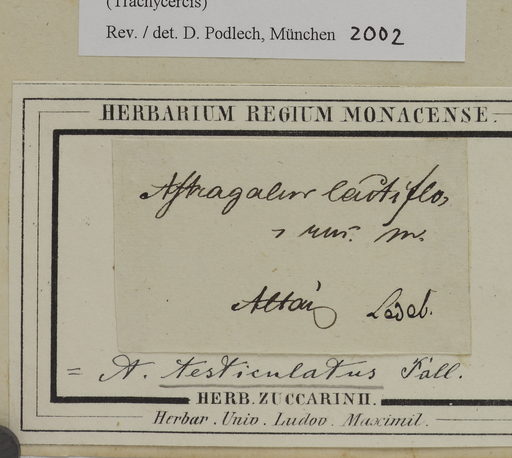 (Trachycercis)
Rev. / det. D. Podlech, München 2002
HERBARIUM REGIUM MONACENSE.
Astragalus lactiflo,
, rus. m.
Altai Ledeb.
= A. testiculatus Pall.
HERB. ZUCCARINII.
Herbar. Univ. Ludov. Maximil.